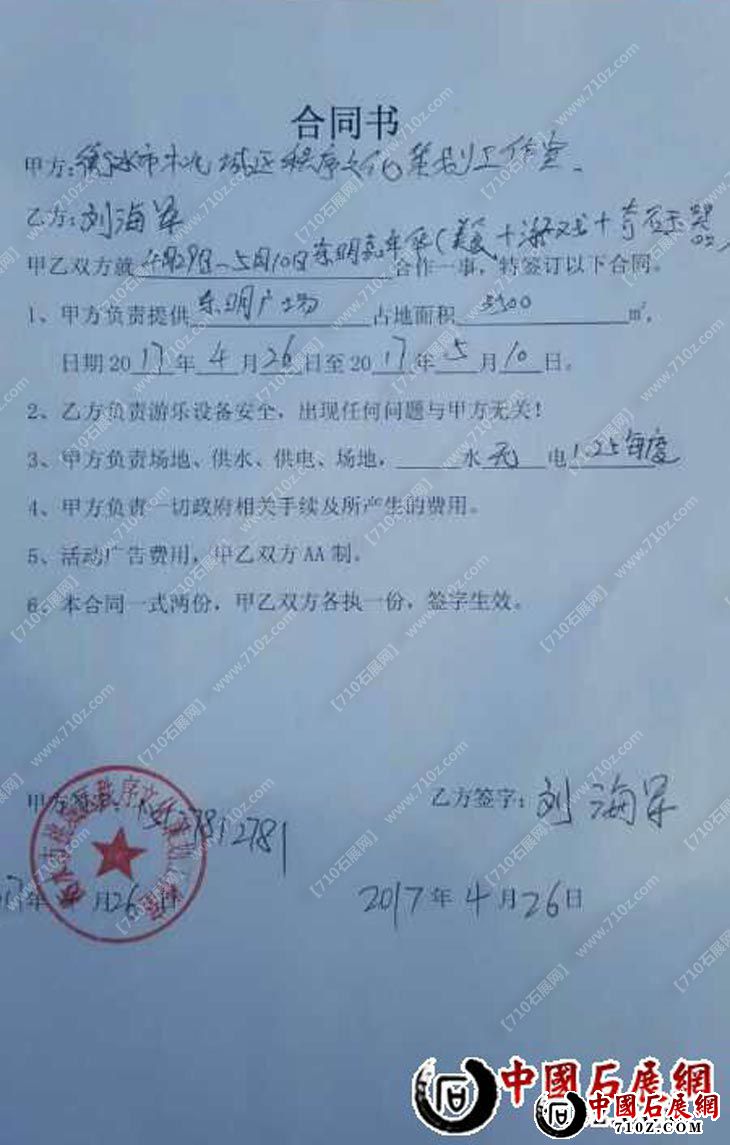 合同书
甲方:衡水市 城区 程序文化策划工作室
乙方:刘海军
甲乙双方就4月29日~5月10日东明嘉年华(美食+游戏+奇石玉器 合作一事,特签订以下合同。
1、甲方负责提供东明广场占地面积3500m²,
日期2017年4月26日至2017年5月10日。
2、乙方负责游乐设备安全,出现任何问题与甲方无关!
3、甲方负责场地、供水、供电、场地, 水无电1.25每度
4、甲方负责一切政府相关手续及所产生的费用。
5、活动广告费用,甲乙双方AA制。
6、本合同一式两份,甲乙双方各执一份,签字生效。
甲方签 27812781
乙方签字:刘海军
17年 月26日
2017年4月26日
中國石展網
中國石展網
710Z.COM
【710石展网】www.710z.com